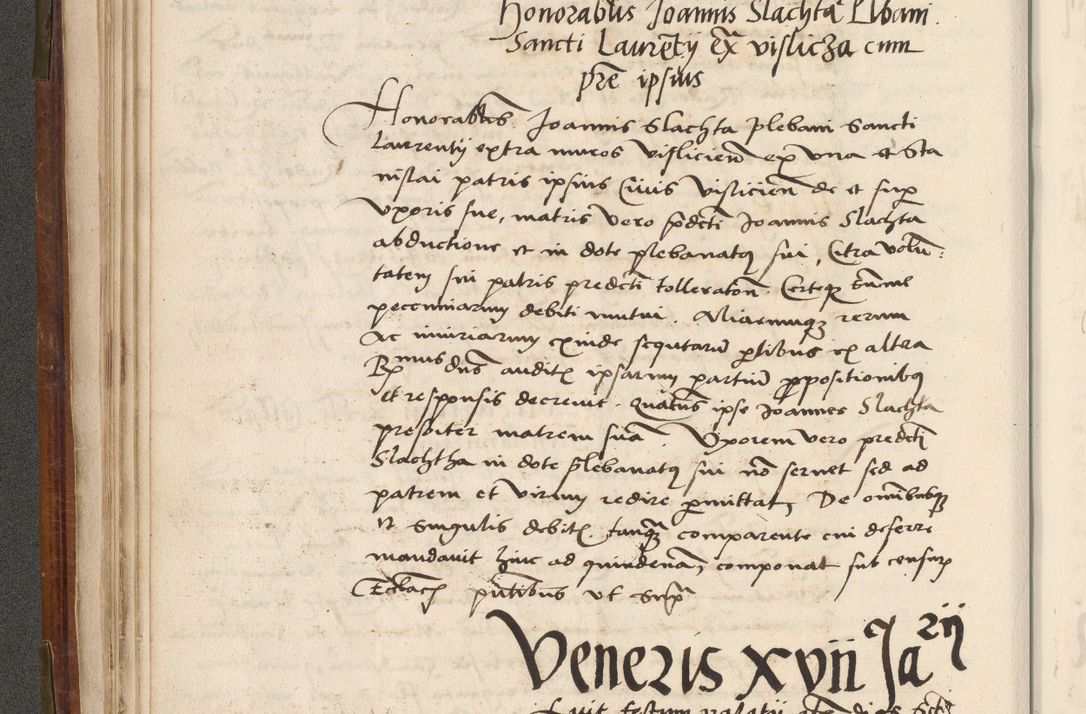 Honorabilis Joannis Slachta Plbani
Sancti Laurentÿ Ex vislicza cum
pre ipsius
Honorabilis Joannis Slachta Plebani Sancti
Laurentÿ extra muros vislicien ex vna et Sta
nislai patris ipsius Civis Visliciens de et sup
Vxoris sue, matris vero pdcti Joannis Slachta
abductione et in dote plebanatq sui, Citra volu:
tatem sui patris predcti tolleration. Certeq
pecuniarum debiti mutui. Aliarumq rerum
Ac iniuriarum exinde sequtarum ptibus ex altra
Rmus dns audit ipsarum partium ppositionibq
et responsis decrevit. Quatenus ipse Joannes Slachta
presbiter matrem suam Vxorem vero predcti
Slachtha in dote plebanatq sui no servet sed ad
patrem et virum redire pmittat, De omnibusq
et singulis debit tanq comparente cui deferre
mandavit hinc ad quindenam, componat sub censurp
Ecclacz pntibus vt supra
Veneris xvii Jarÿ